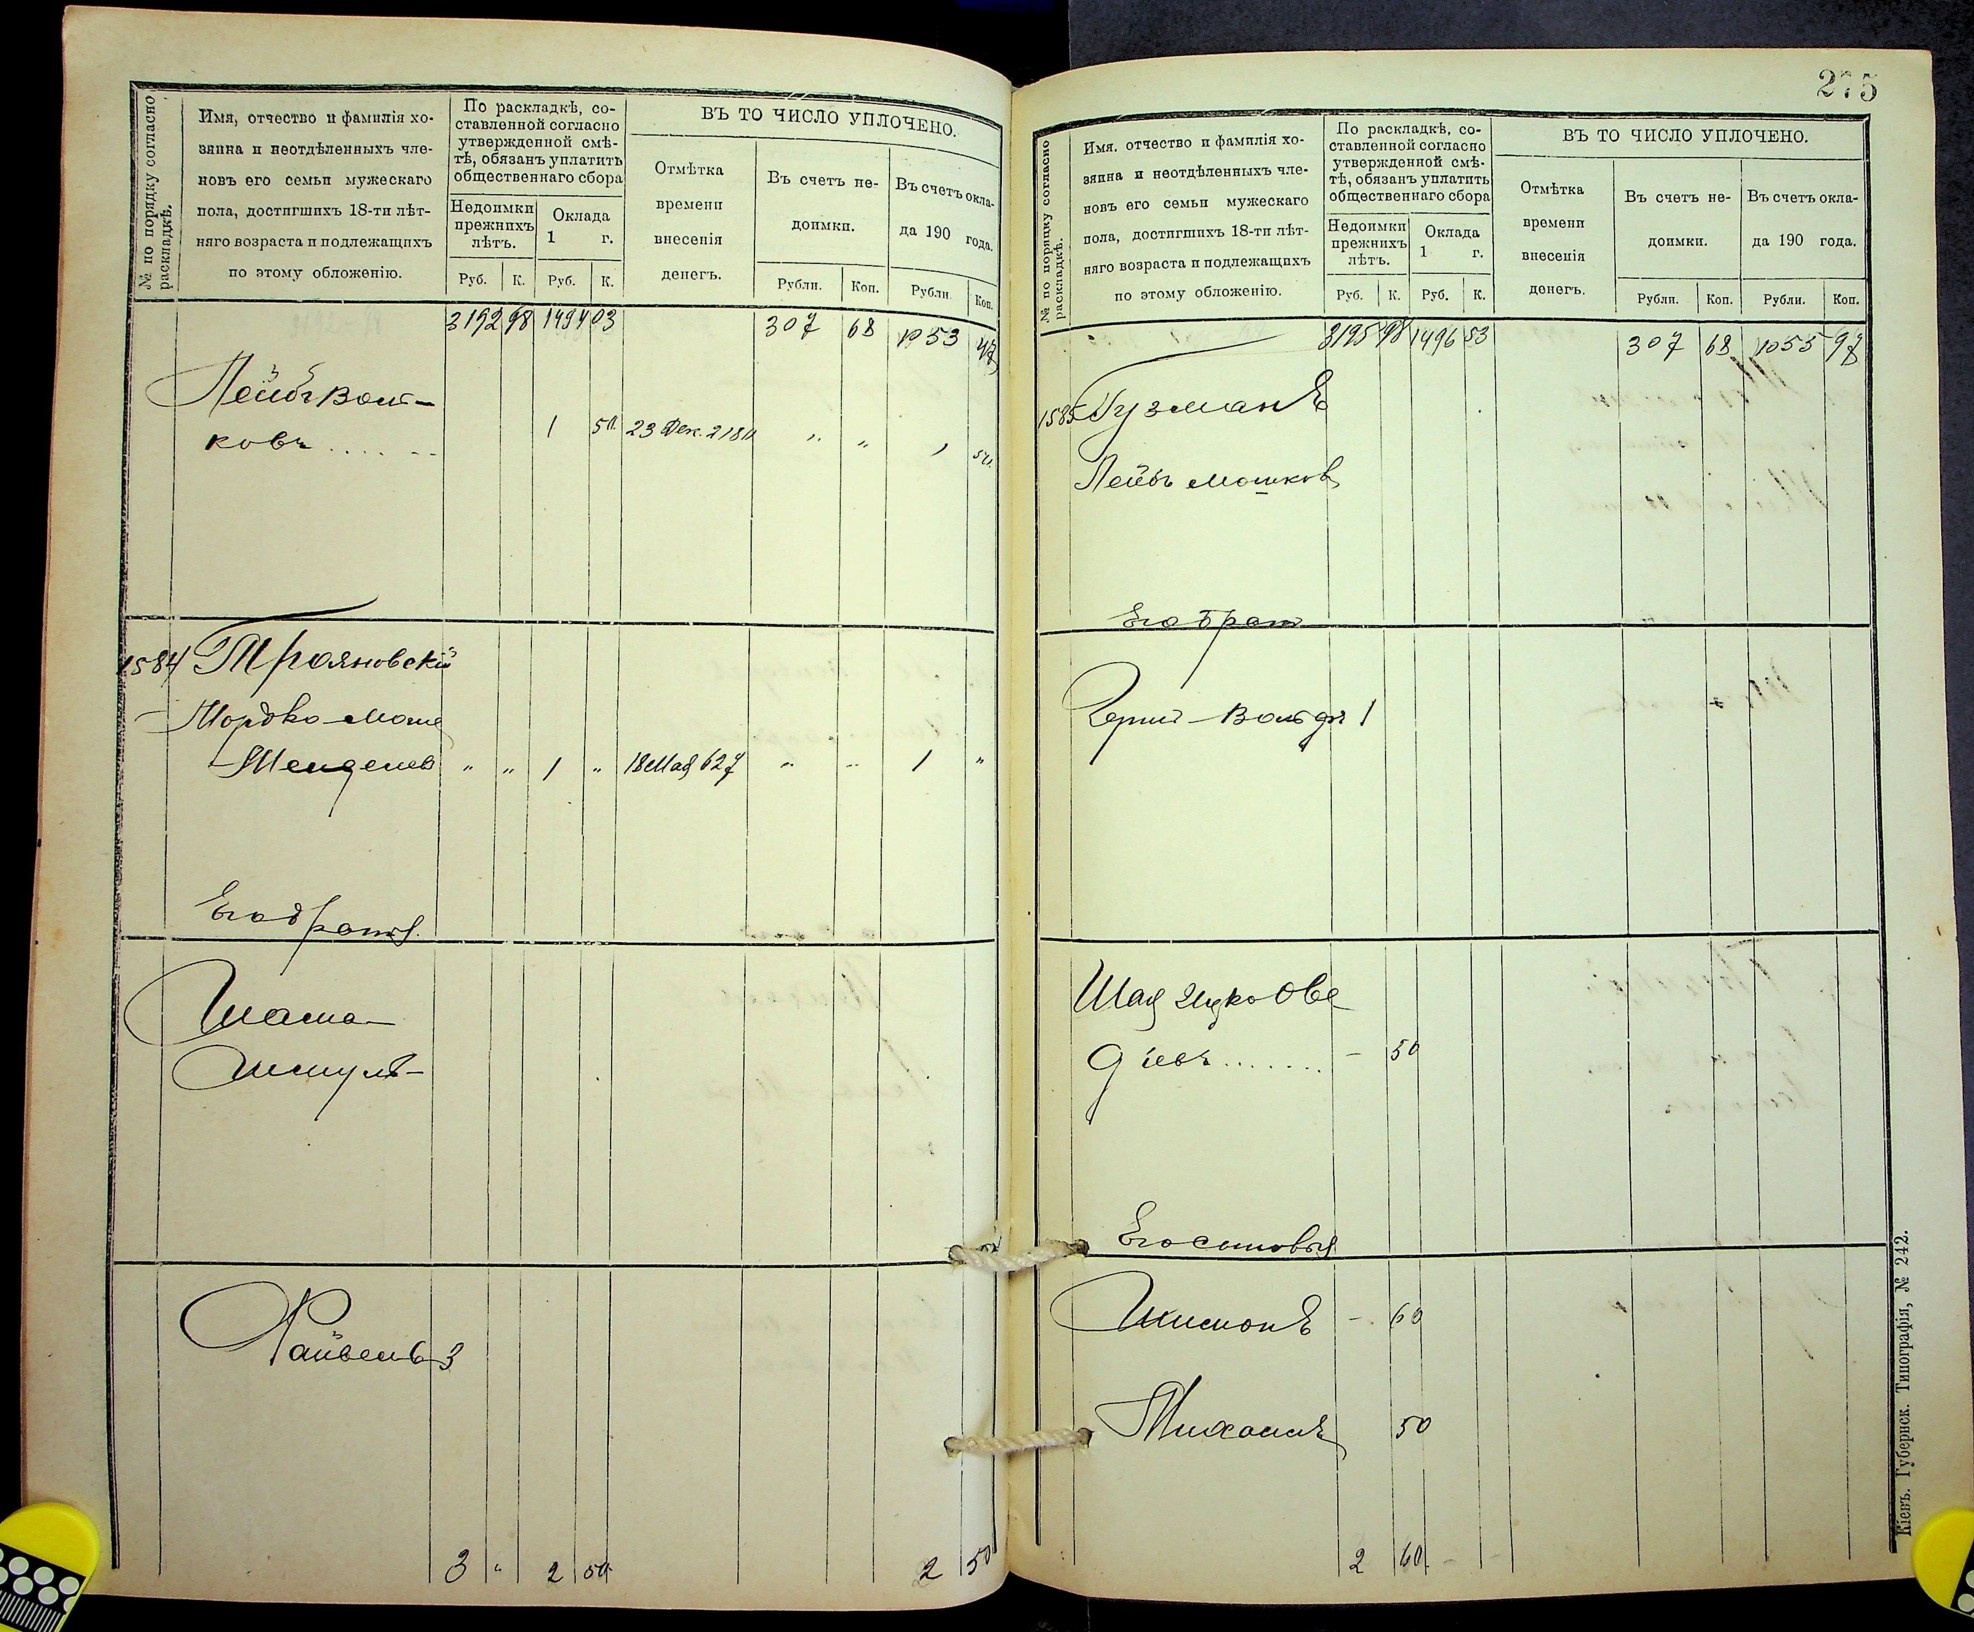 № по порядку согласно
раскладкѣ.
Имя, отчество и фамилія хо-
зяина и неотдѣленныхъ чле-
новъ его семьи мужескаго
пола, достигшихъ 18-ти лѣт-
няго возраста и подлежащихъ
по этому обложенію.
По раскладкѣ, со-
ставленной согласно
утвержденной смѣ-
тѣ, обязанъ уплатить
общественнаго сбора
Недоимки
прежнихъ
лѣтъ.
Оклада
1 г.
Руб. К. Руб. К.
ВЪ ТО ЧИСЛО УПЛОЧЕНО.
Отмѣтка
времени
внесенія
денегъ.
Въ счетъ не-
доимки.
Въ счетъ окла-
да 190 года.
Рубли. Коп. Рубли. Коп.
3192 98 1494 03 307 68 1053 47
Лейбъ Воль-
ковъ 1 50 23 Дек. 2180 " " 1 50
1584 Трояновскій
Мордко-Моше
Менделев " " 1 " 18 Мая 627 " " 1 "
Его братья
Шама
Шмуль
Файвель 3
3 " 2 50 2 50
275
№ по порядку согласно
раскладкѣ.
Имя, отчество и фамилія хо-
зяина и неотдѣленныхъ чле-
новъ его семьи мужескаго
пола, достигшихъ 18-ти лѣт-
няго возраста и подлежащихъ
по этому обложенію.
По раскладкѣ, со-
ставленной согласно
утвержденной смѣ-
тѣ, обязанъ уплатить
общественнаго сбора
Недоимки
прежнихъ
лѣтъ.
Оклада
1 г.
Руб. К. Руб. К.
ВЪ ТО ЧИСЛО УПЛОЧЕНО.
Отмѣтка
времени
внесенія
денегъ.
Въ счетъ не-
доимки.
Въ счетъ окла-
да 190 года.
Рубли. Коп. Рубли. Коп.
3195 98 1496 53 307 68 1055 97
1585 Гузманъ
Лейбъ Мошков
Его братъ
Герш-Вольфъ 1
Шая Ицко Ове
діевъ - 50
Его сыновья
Шимонъ - 60
Михаилъ 50
2 60
Кіевъ. Губернск. Типографія, № 242.